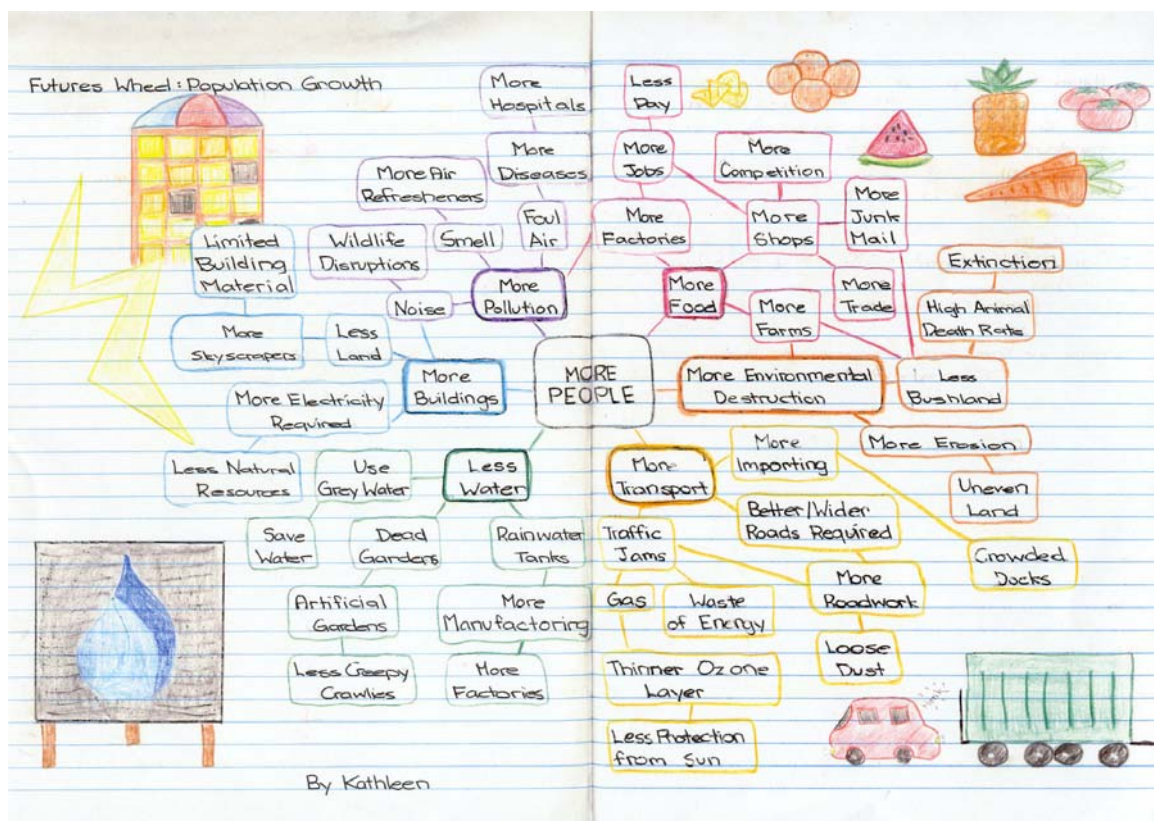 Futures Wheel: Population Growth
More
Hospitals
Less
Pay
More
Diseases
More
Jobs
More
Competition
More Air
Refresheners
Foul
Air
More
Factories
More
Shops
More
Junk
Mail
Limited
Building
Material
Wildlife
Disruptions
Smell
Extinction
Noise
More
Pollution
More
Food
More
Farms
More
Trade
High Animal
Death Rate
More
Skyscrapers
Less
Land
More
Buildings
MORE
PEOPLE
More Environmental
Destruction
Less
Bushland
More Electricity
Required
More
Importing
More Erosion
Less Natural
Resources
Use
Grey Water
Less
Water
More
Transport
Uneven
Land
Better/Wider
Roads Required
Save
Water
Dead
Gardens
Rainwater
Tanks
Traffic
Jams
Crowded
Docks
More
Roadwork
Artificial
Gardens
More
Manufactoring
Gas
Waste
of Energy
Loose
Dust
Less Creepy
Crawlies
More
Factories
Thinner Ozone
Layer
Less Protection
from Sun
By Kathleen